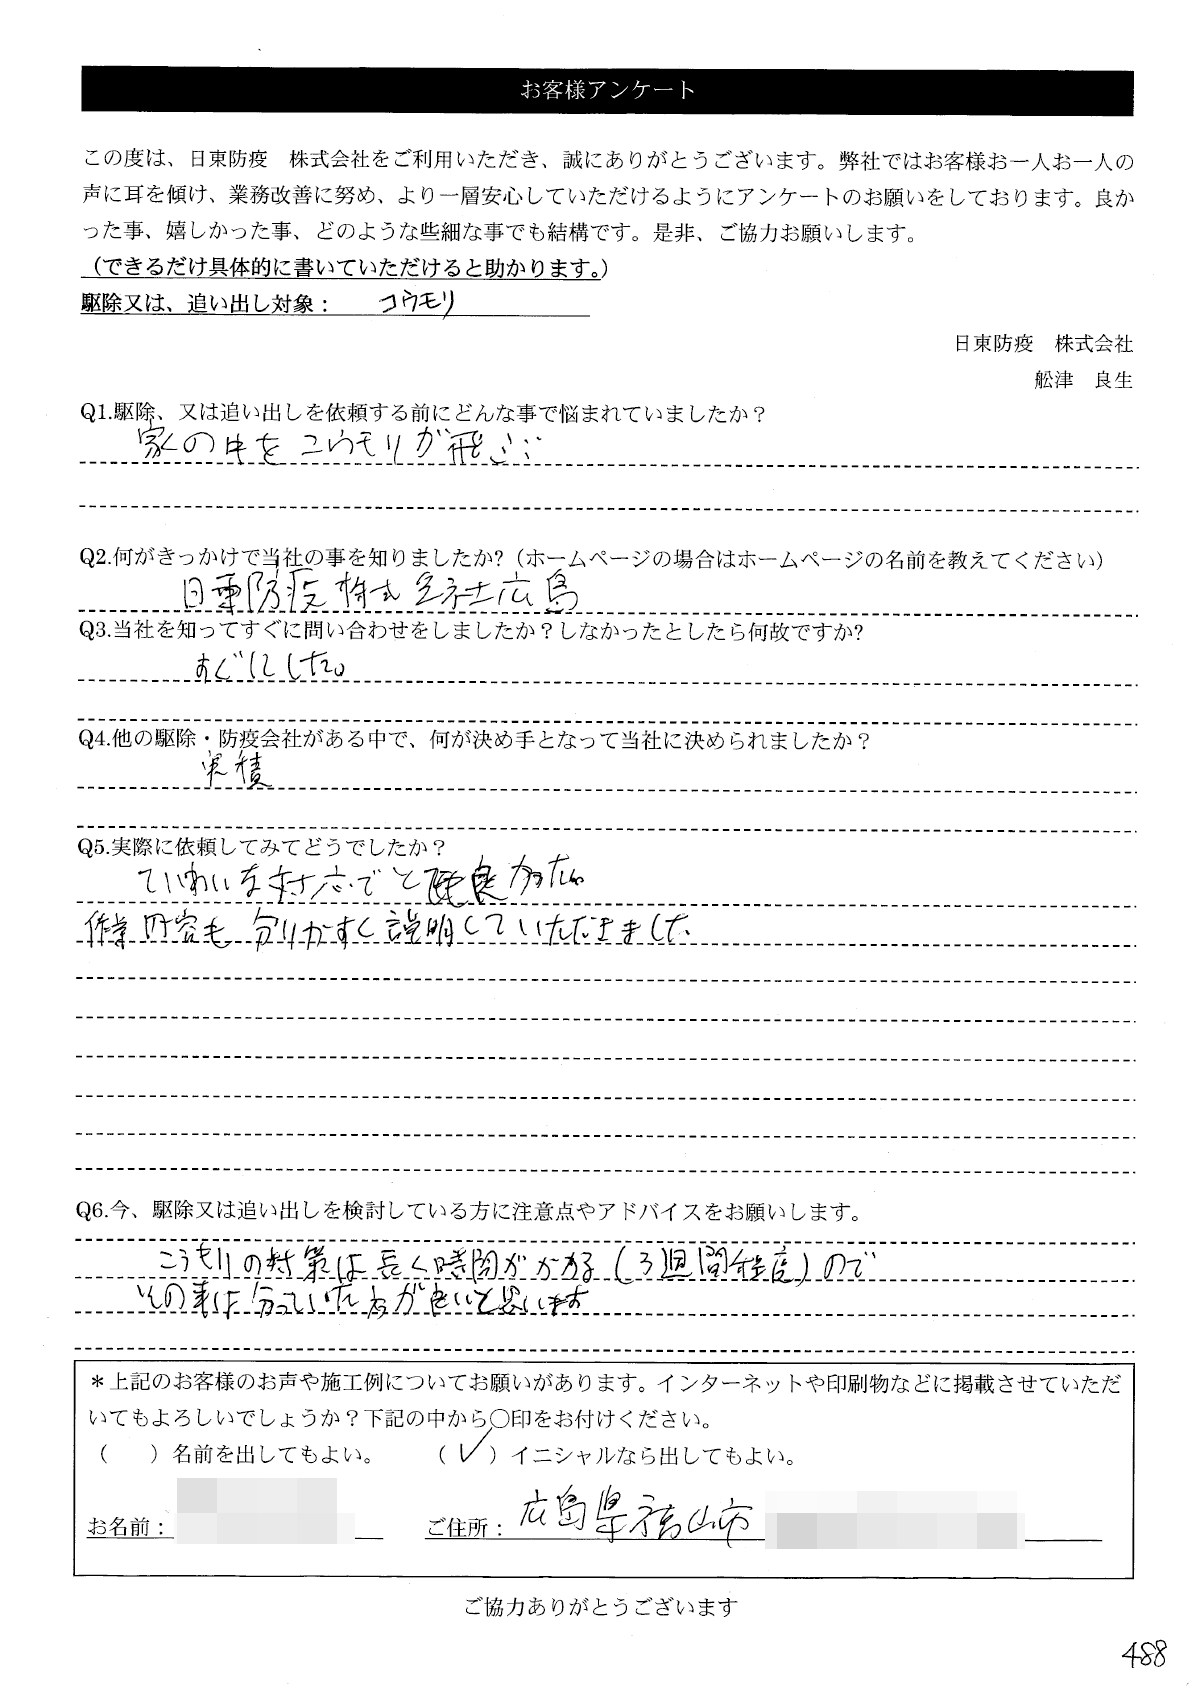 お客様アンケート
この度は、日東防疫　株式会社をご利用いただき、誠にありがとうございます。弊社ではお客様お一人お一人の
声に耳を傾け、業務改善に努め、より一層安心していただけるようにアンケートのお願いをしております。良か
った事、嬉しかった事、どのような些細な事でも結構です。是非、ご協力お願いします。
（できるだけ具体的に書いていただけると助かります。）
駆除又は、追い出し対象： コウモリ
日東防疫　株式会社
舩津　良生
Q1.駆除、又は追い出しを依頼する前にどんな事で悩まれていましたか？
家の中をコウモリが飛ぶ…
Q2.何がきっかけで当社の事を知りましたか?（ホームページの場合はホームページの名前を教えてください）
日東防疫株式会社広島
Q3.当社を知ってすぐに問い合わせをしましたか？しなかったとしたら何故ですか?
すぐにした。
Q4.他の駆除・防疫会社がある中で、何が決め手となって当社に決められましたか？
実積
Q5.実際に依頼してみてどうでしたか？
ていねいな対応でとても良かった。
作業内容も分りやすく説明していただきました
Q6.今、駆除又は追い出しを検討している方に注意点やアドバイスをお願いします。
こうもりの対策は長く時間がかかる（3週間程度）ので
その事は分っていた方が良いと思います
＊上記のお客様のお声や施工例についてお願いがあります。インターネットや印刷物などに掲載させていただ
いてもよろしいでしょうか？下記の中から○印をお付けください。
（　　）名前を出してもよい。　　（✓）イニシャルなら出してもよい。
お名前：　　ご住所： 広島県福山市
ご協力ありがとうございます
488